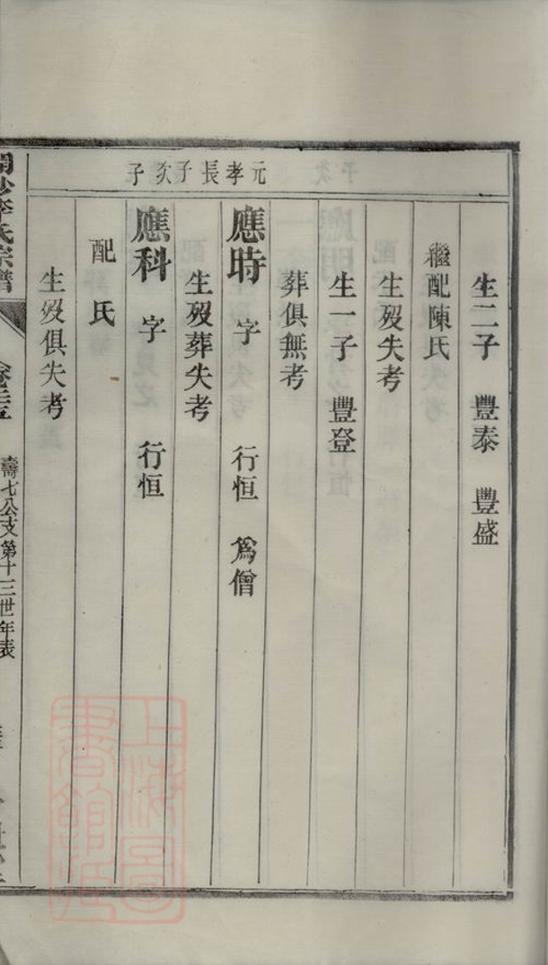 生二子 豐泰 豐盛
繼配陳氏
生歿失考
生一子 豐登
葬俱無考
元孝長子 次子
應時 字 行恒 爲僧
生歿葬失考
應科 字 行恒
配 氏
生歿俱失考
李氏宗譜
壽七公支第十三世年表
上海圖書館藏